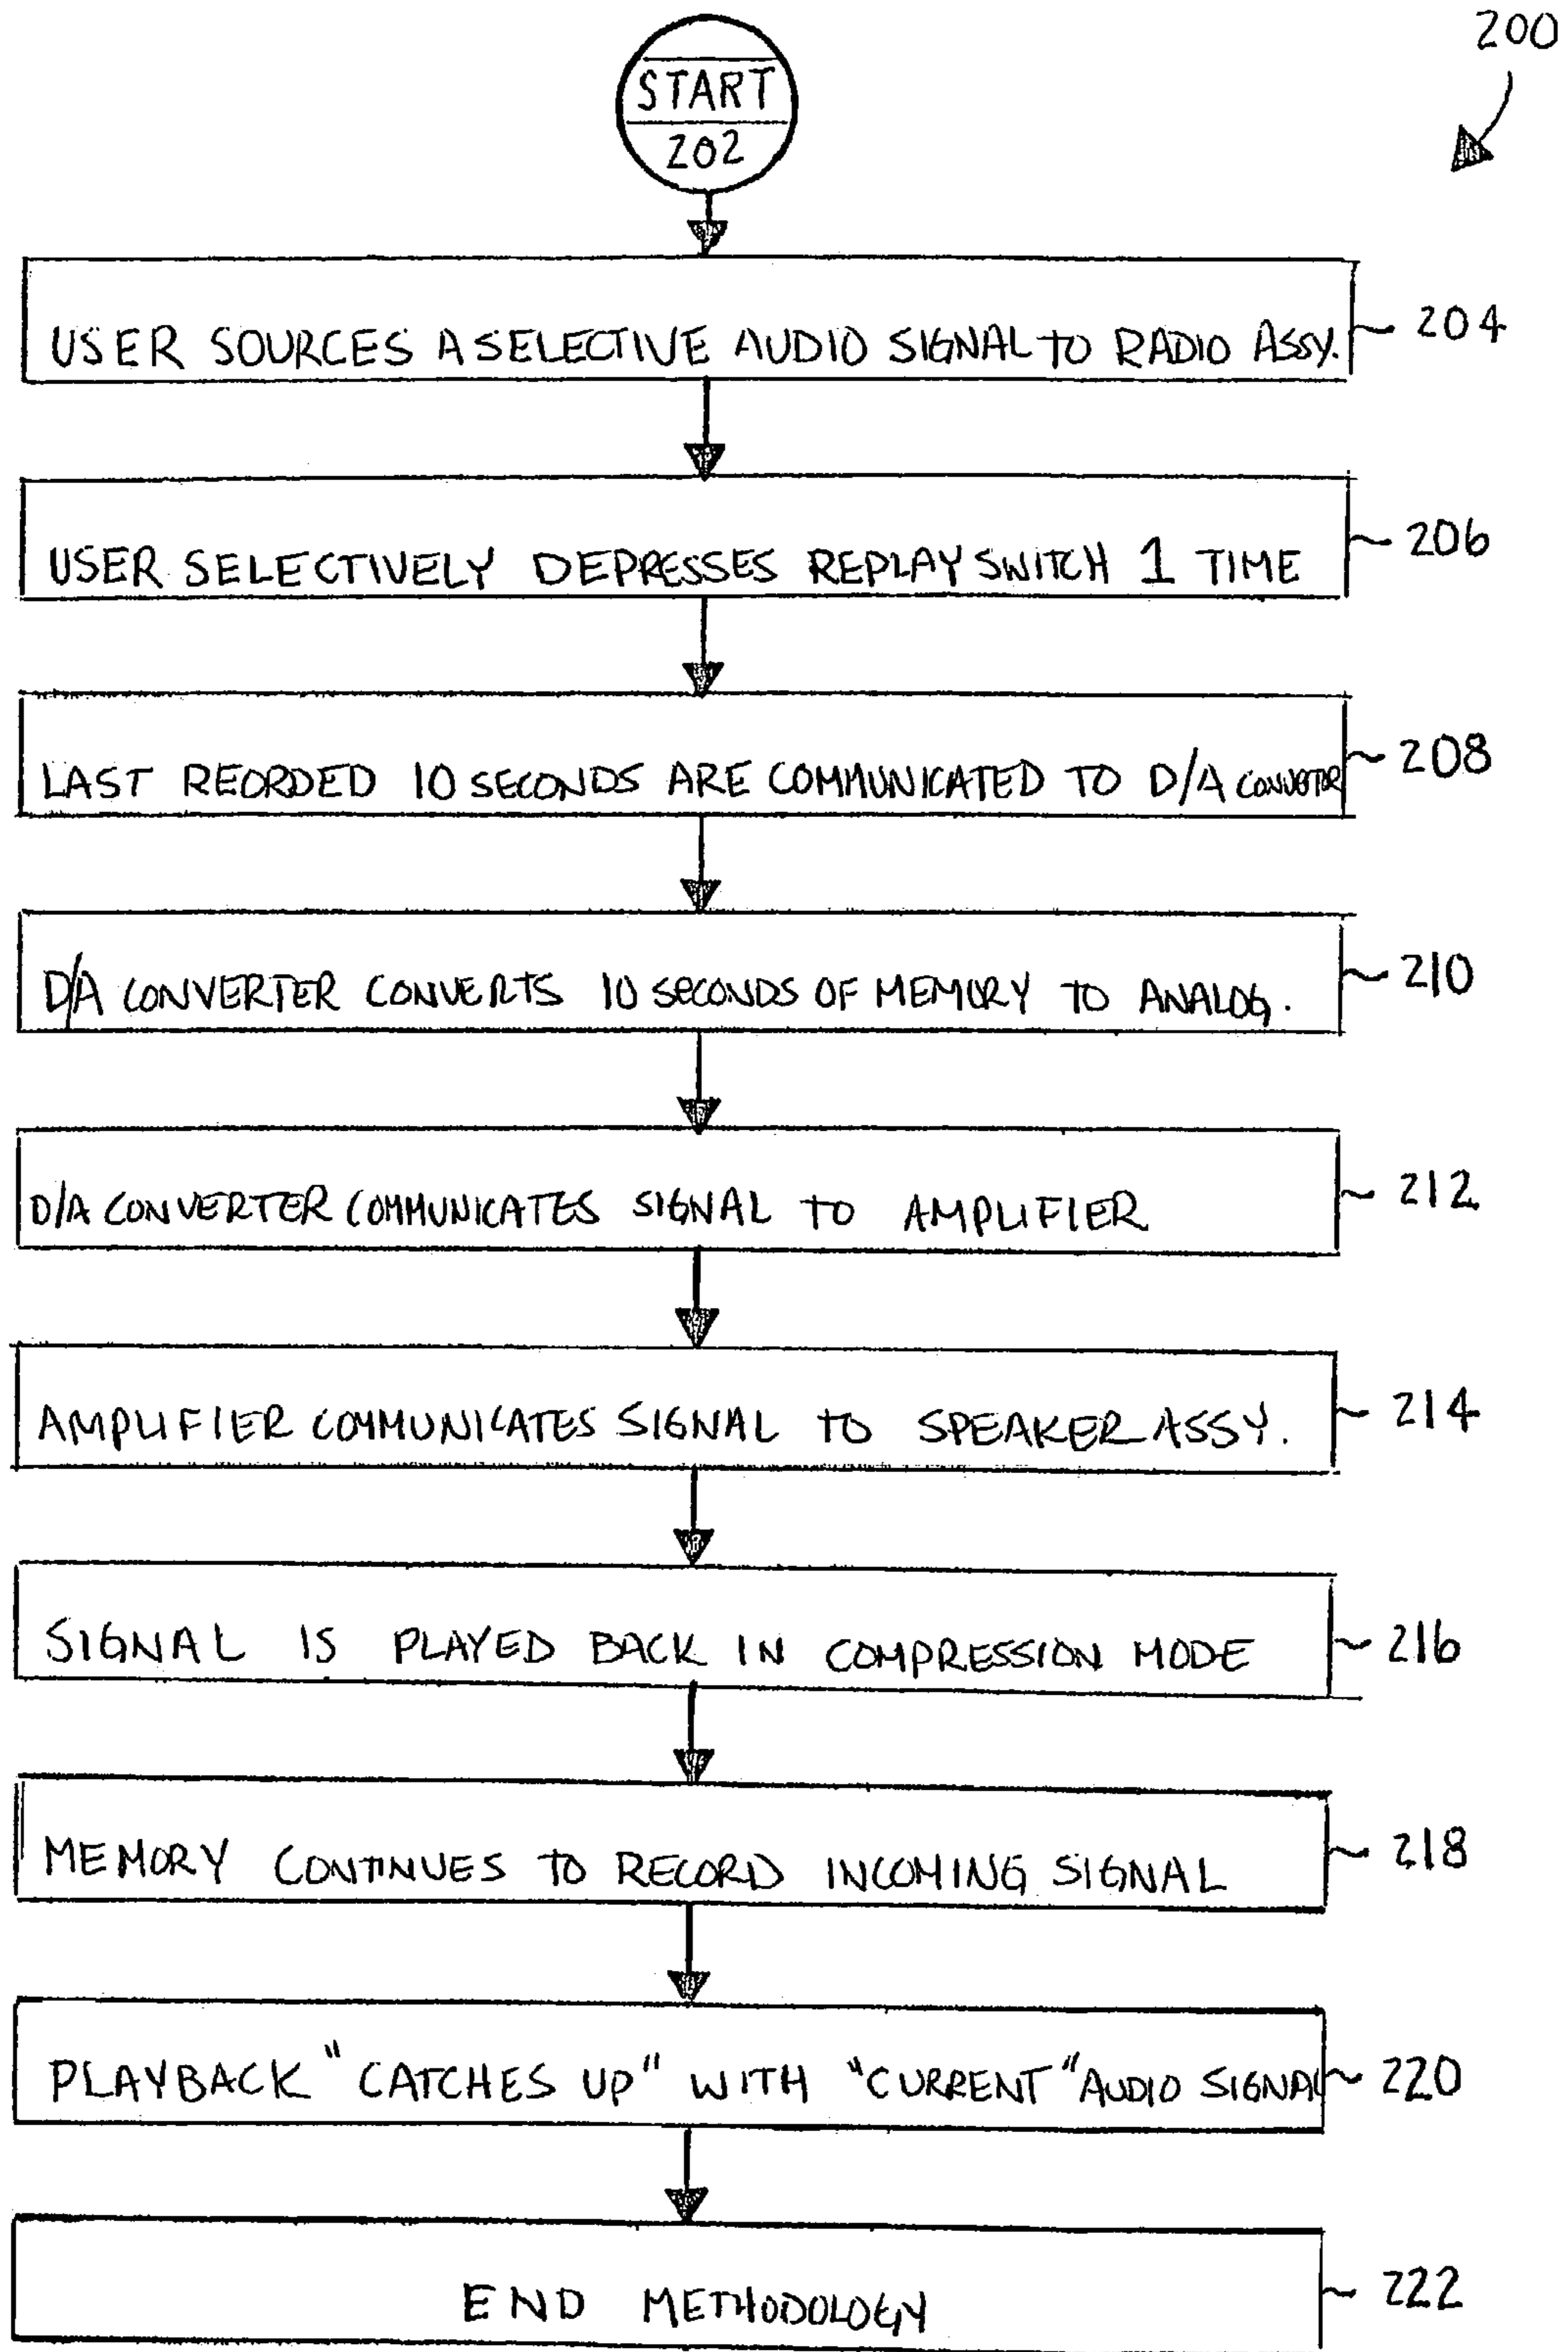 200
START
202
USER SOURCES A SELECTIVE AUDIO SIGNAL TO RADIO ASSY. 204
USER SELECTIVELY DEPRESSES REPLAY SWITCH 1 TIME 206
LAST REORDED 10 SECONDS ARE COMMUNICATED TO D/A 208
D/A CONVERTER CONVERTS 10 SECONDS OF MEMORY TO ANALOG. 210
D/A CONVERTER COMMUNICATES SIGNAL TO AMPLIFIER 212
AMPLIFIER COMMUNICATES SIGNAL TO SPEAKER ASSY. 214
SIGNAL IS PLAYED BACK IN COMPRESSION MODE 216
MEMORY CONTINUES TO RECORD INCOMING SIGNAL 218
PLAYBACK "CATCHES UP" WITH "CURRENT" AUDIO SIGNAL 220
END METHODOLOGY 222